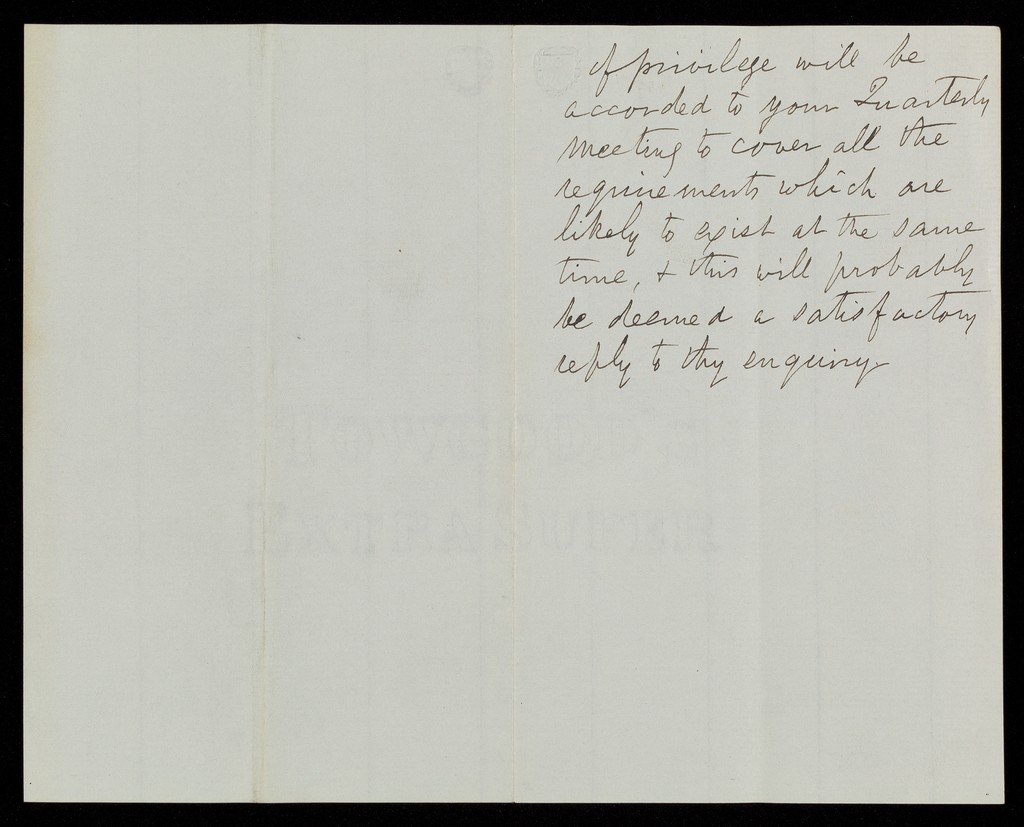 of privilege will be
accorded to your Quarterly
Meeting to cover all the
requirements which are
likely to exist at the same
time, & this will probably
be deemed a satisfactory
reply to thy enquiry